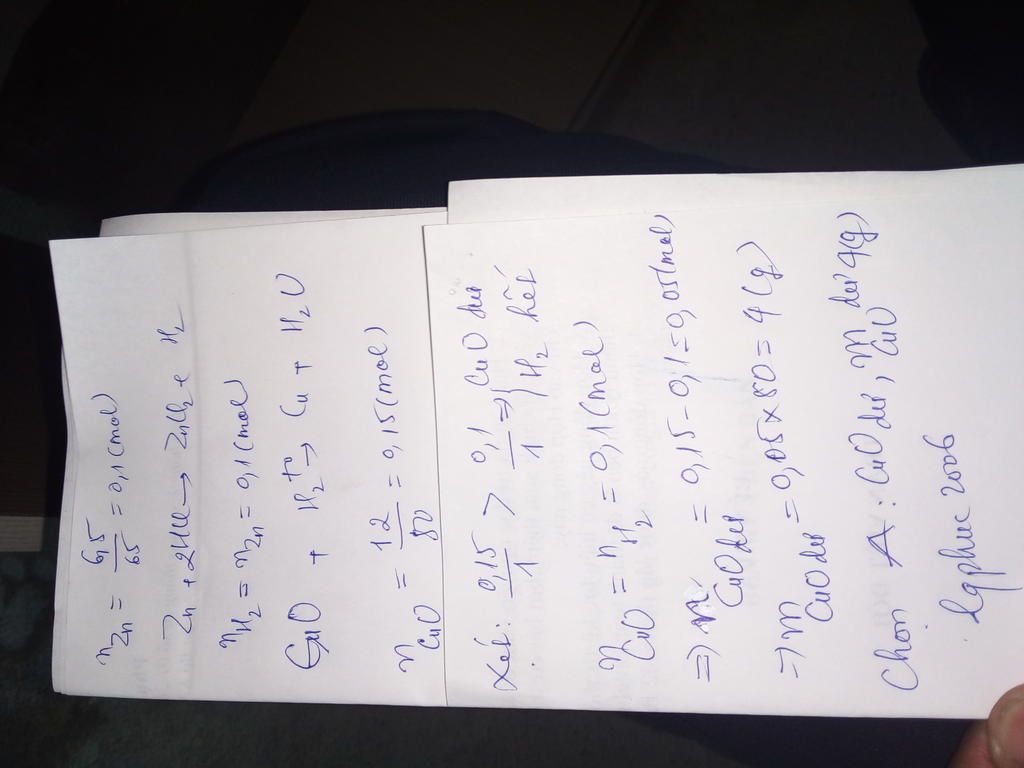 n Zn = 6,5/65 = 0,1 (mol)
Zn + 2HCl → ZnCl2 + H2
nH2 = nZn = 0,1 (mol)
CuO + H2 t°→ Cu + H2O
nCuO = 12/80 = 0,15 (mol)
Xét: 0,15/1 > 0,1/1 ⇒ { CuO dư
H2 hết
nCuO = nH2 = 0,1 (mol)
⇒ nCuO dư = 0,15 - 0,1 = 0,05 (mol)
⇒ mCuO dư = 0,05 x 80 = 4 (g)
Chọn A: CuO dư, mCuO dư 4(g)
lgphuc2006